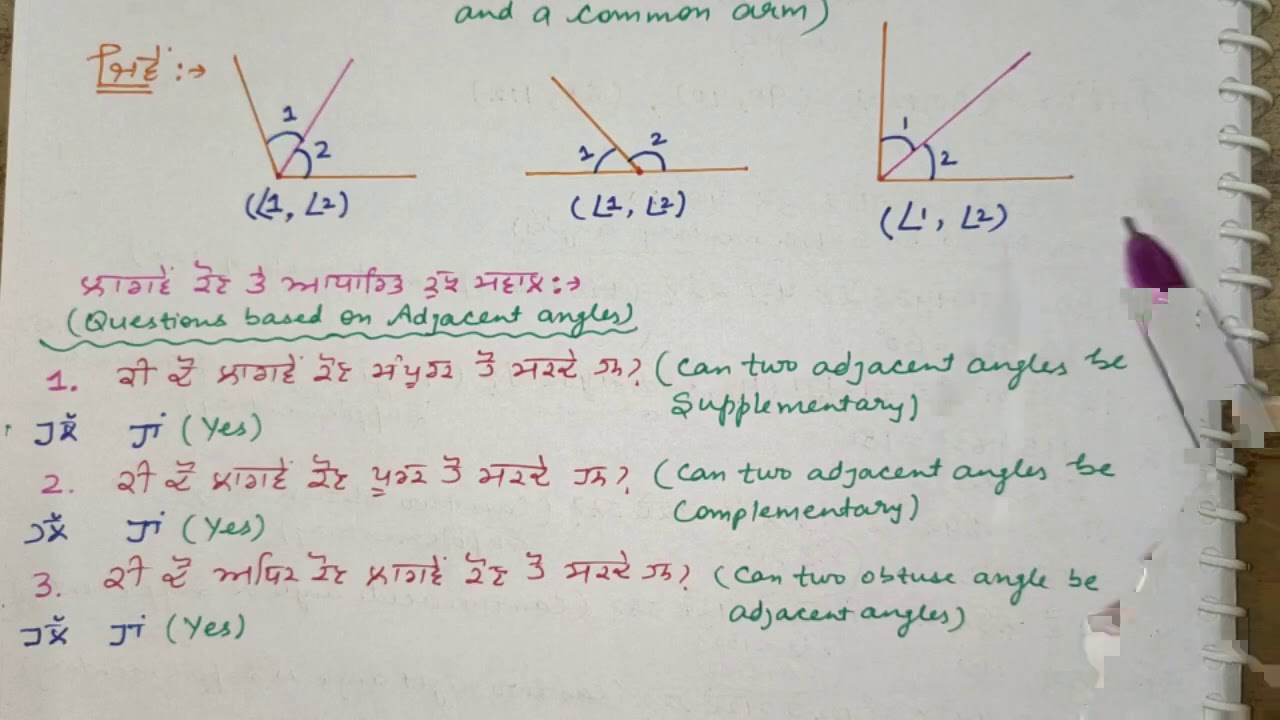 and a common arm)
ਜਿਵੇਂ :→
1 2 1 2 1 2
(∠1, ∠2) (∠1, ∠2) (∠1, ∠2)
ਲਾਗਵੇਂ ਕੋਣ ਤੇ ਆਧਾਰਿਤ ਕੁਝ ਸਵਾਲ :→
(Questions based on Adjacent angles)
1. ਕੀ ਦੋ ਲਾਗਵੇਂ ਕੋਣ ਸੰਪੂਰਕ ਹੋ ਸਕਦੇ ਹਨ? (Can two adjacent angles be
Supplementary)
ਹੱਲ ਹਾਂ (Yes)
2. ਕੀ ਦੋ ਲਾਗਵੇਂ ਕੋਣ ਪੂਰਕ ਹੋ ਸਕਦੇ ਹਨ? (Can two adjacent angles be
Complementary)
ਹੱਲ ਹਾਂ (Yes)
3. ਕੀ ਦੋ ਅਧਿਕ ਕੋਣ ਲਾਗਵੇਂ ਕੋਣ ਹੋ ਸਕਦੇ ਹਨ? (Can two obtuse angle be
adjacent angles)
ਹੱਲ ਹਾਂ (Yes)